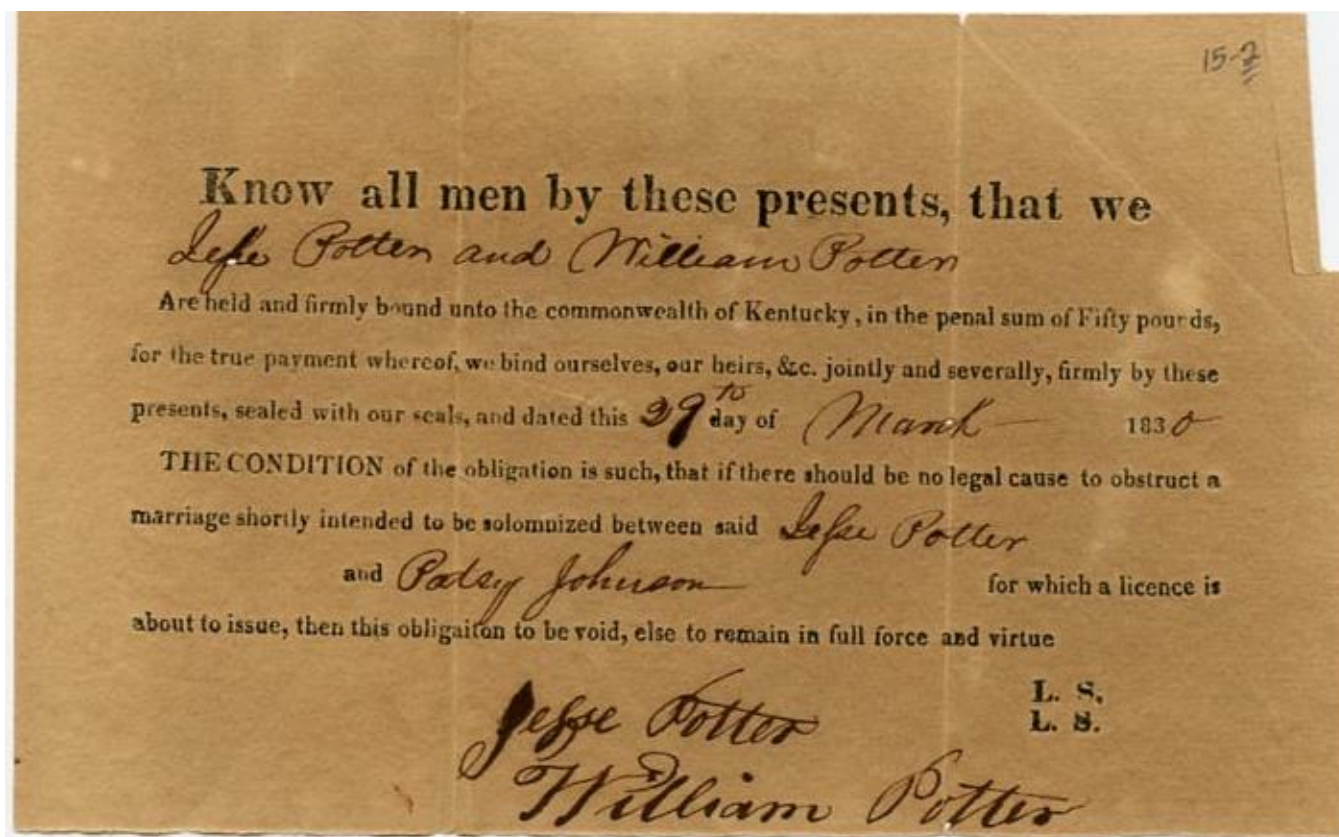 15-2
Know all men by these presents, that we
Jesse Potter and William Potter
Are held and firmly bound unto the commonwealth of Kentucky, in the penal sum of Fifty pounds,
for the true payment whereof, we bind ourselves, our heirs, &c. jointly and severally, firmly by these
presents, sealed with our seals, and dated this 29th day of March 1830
THE CONDITION of the obligation is such, that if there should be no legal cause to obstruct a
marriage shortly intended to be solomnized between said Jesse Potter
and Patsy Johnson for which a licence is
about to issue, then this obligaiton to be void, else to remain in full force and virtue
Jesse Potter L. S.
William Potter L. S.